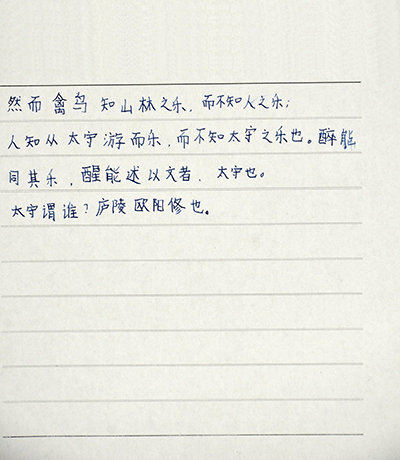 然而禽鸟知山林之乐，而不知人之乐；
人知从太守游而乐，而不知太守之乐也。醉能
同其乐，醒能述以文者，太守也。
太守谓谁？庐陵欧阳修也。